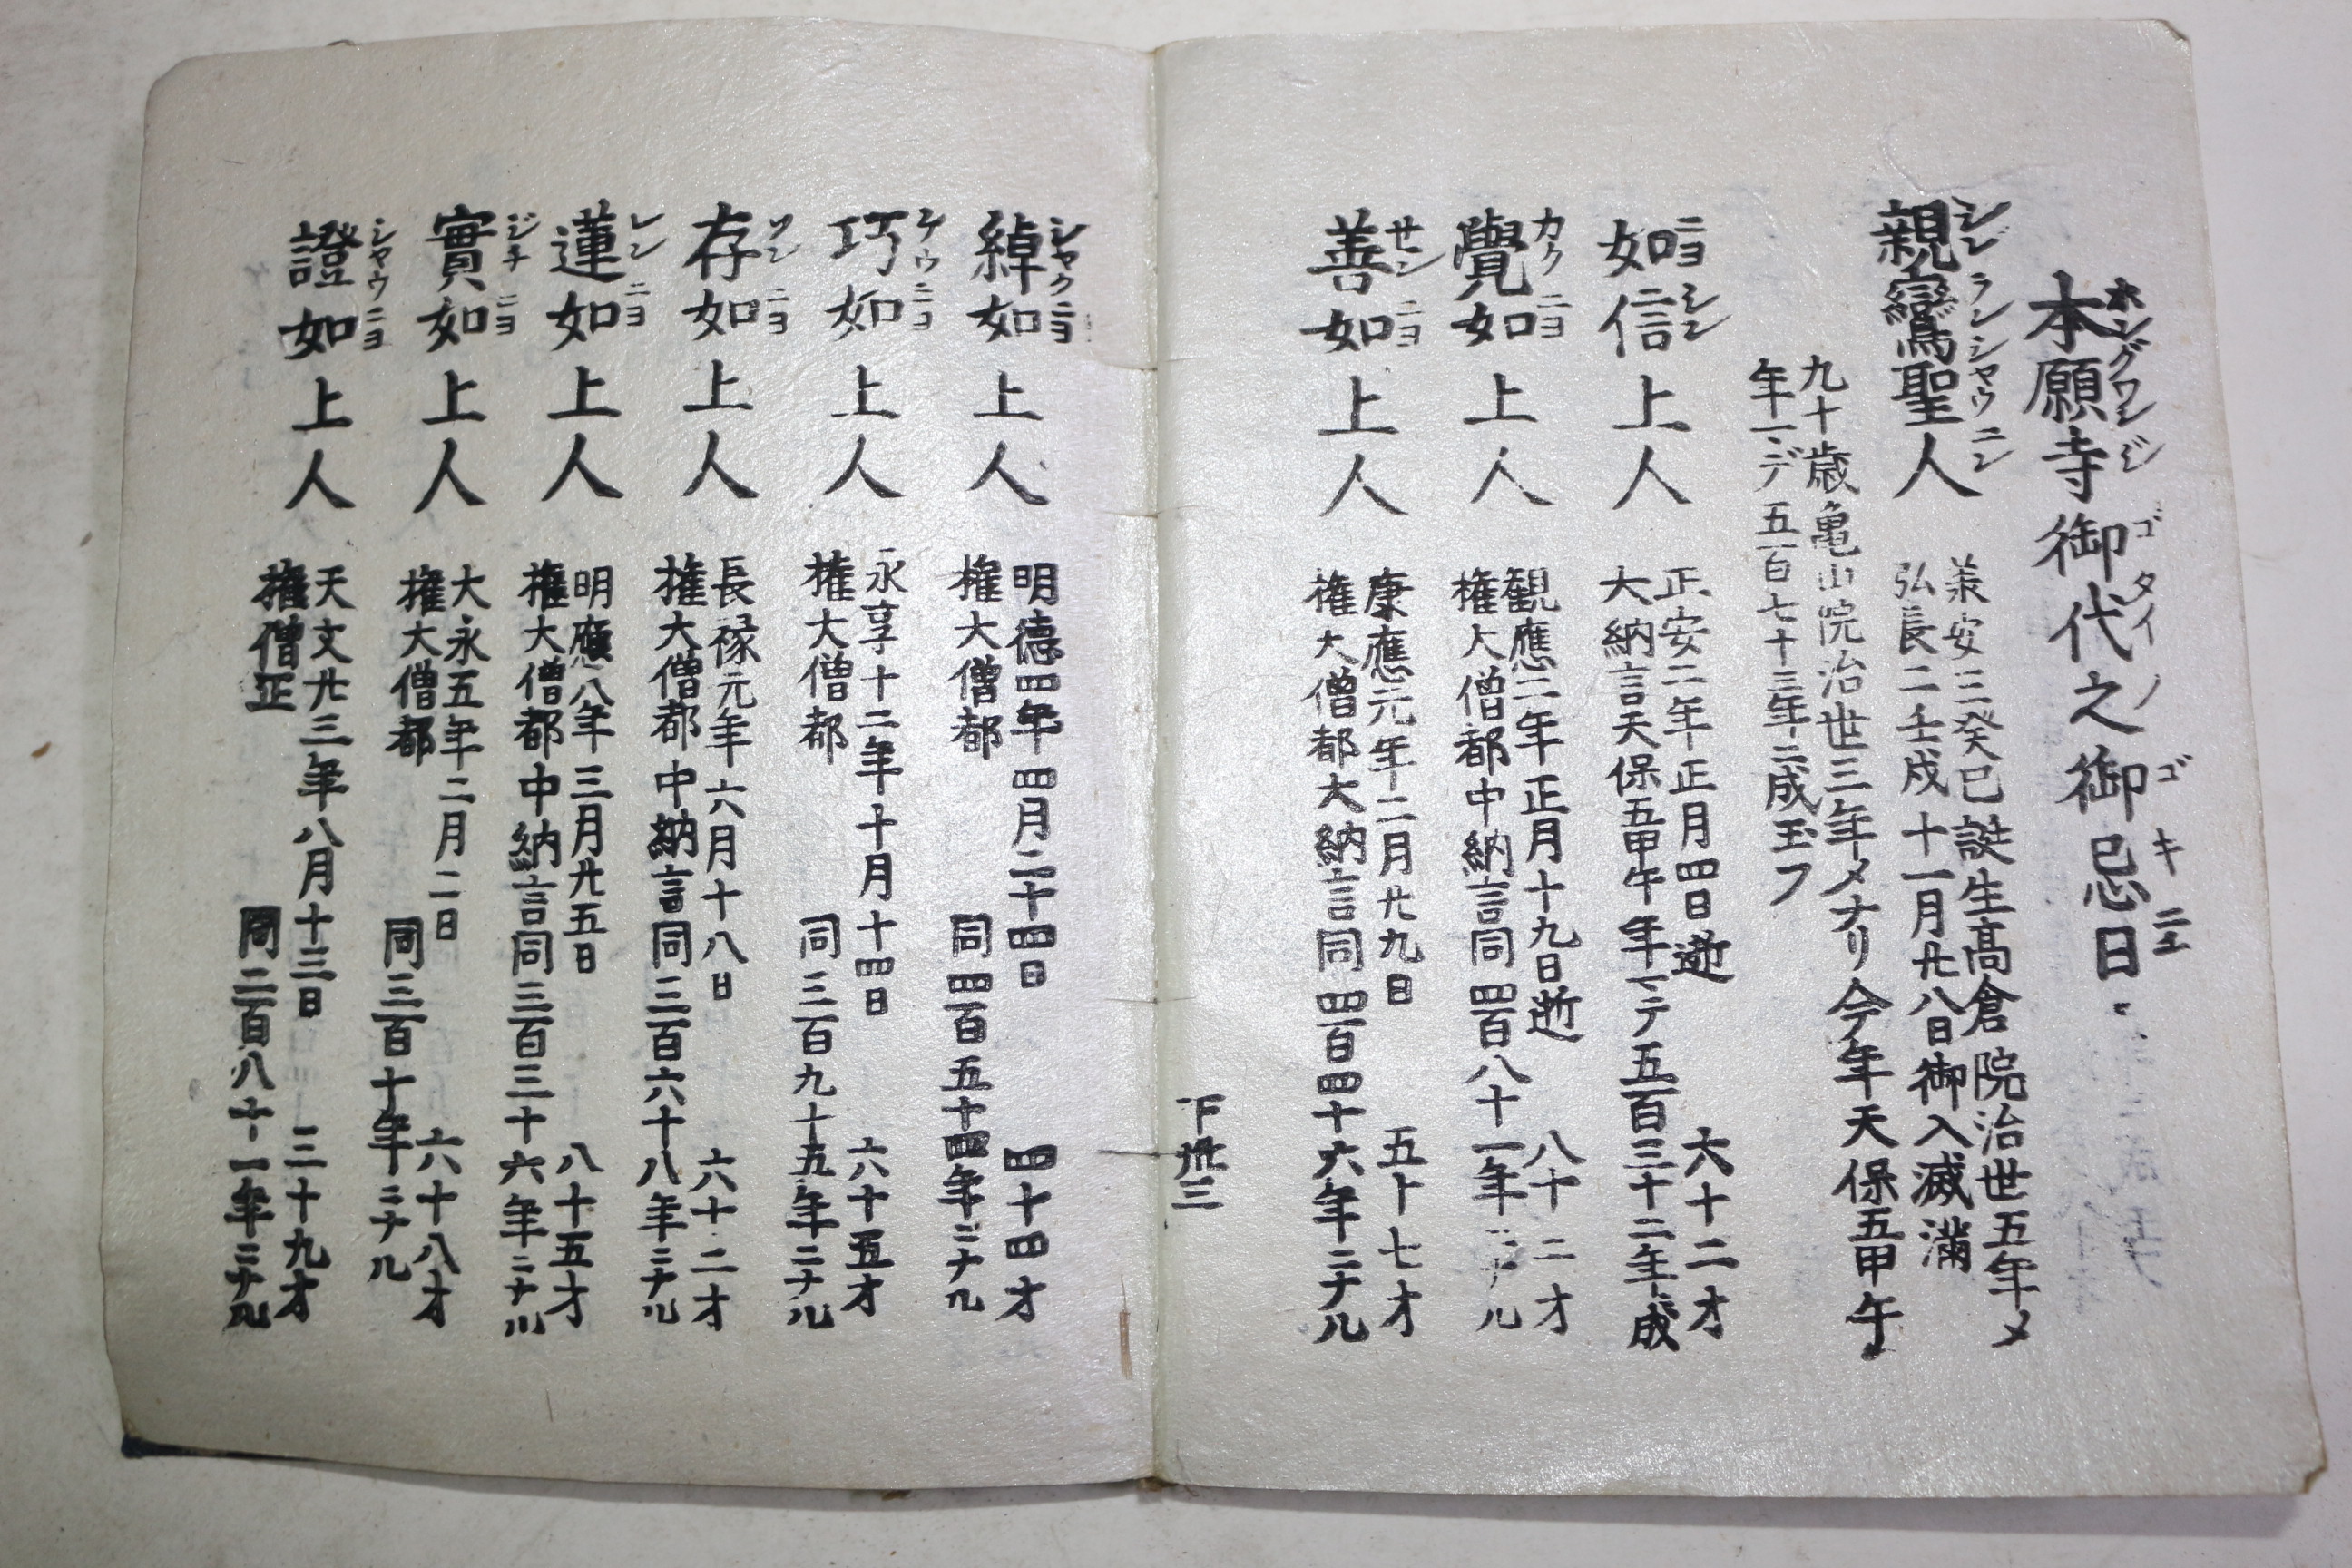 本願寺御代之御忌日
ホングワンジ ゴタイノ ゴキニチ
親鸞聖人
シンランシヤウニン
羕安三癸巳誕生高倉院治世五年メ
弘長二壬戌十一月廿八日御入滅満
九十歳亀山院治世三年メナリ今年天保五甲午
年マデ五百七十三年ニ成玉フ
如信上人
ニヨシン
正安二年正月四日逝 六十二才
大納言天保五甲午年マテ五百三十二年成
覺如上人
カクニヨ
観應二年正月十九日逝 八十二才
権大僧都中納言同四百八十一年ニナル
善如上人
ゼンニヨ
康應元年二月廿九日 五十七才
権大僧都大納言同四百四十六年ニナル
下卅三
綽如上人
シヤクニヨ
明德四年四月二十四日 四十四才
権大僧都 同四百五十四年ニナル
巧如上人
ゲウニヨ
永享十二年十月十四日 六十五才
権大僧都 同三百九十五年ニナル
存如上人
ゾンニヨ
長禄元年六月十八日 六十二才
権大僧都中納言同三百六十八年ニナル
蓮如上人
レンニヨ
明應八年三月廿五日 八十五才
権大僧都中納言同三百三十六年ニナル
實如上人
ジチニヨ
大永五年二月二日 六十八才
権大僧都 同三百十年ニナル
證如上人
シヤウニヨ
天文廿三年八月十三日 三十九才
権僧正 同二百八十一年ニナル